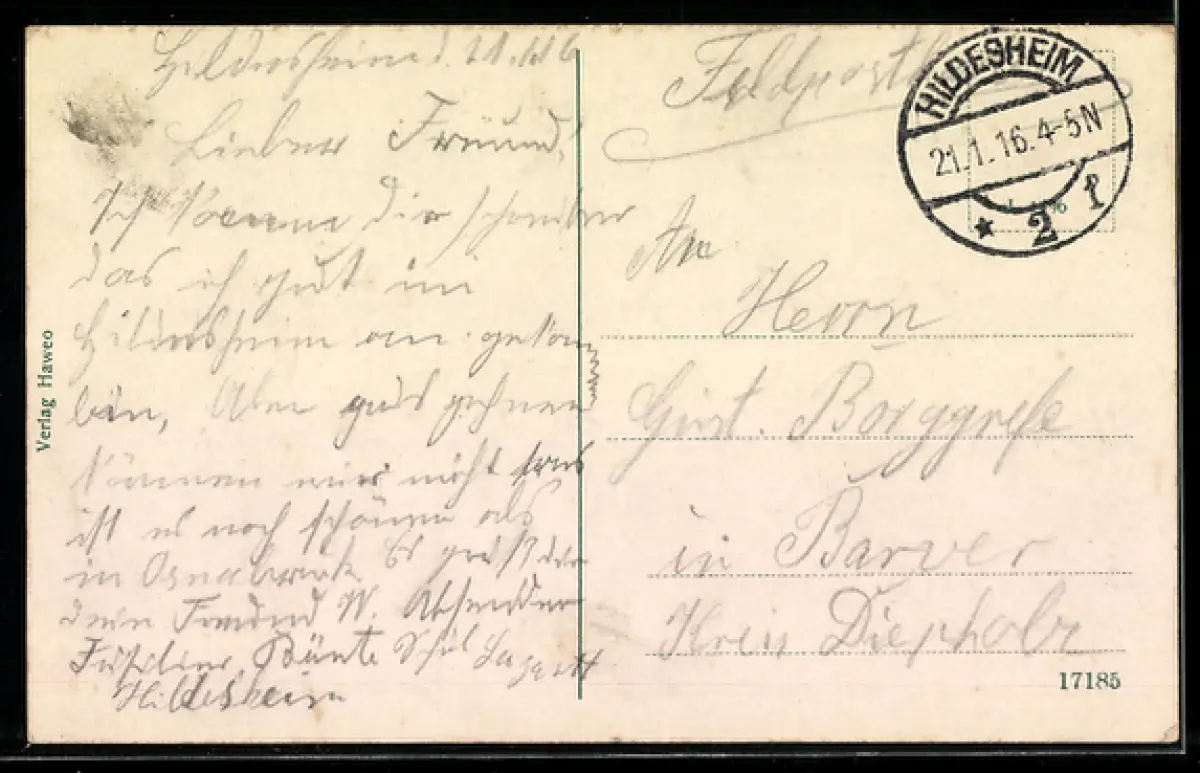 Hildesheim d. 21.1.16
Lieber Freund!
Ich kann dir schreiben
das ich gut in
Hildesheim an gekom
bin, Aber
können wir nicht
ist es noch schöner als
in Osnabrück Es grüßt dir
dein Freund W. Absender
Füselier Bünte
Hildesheim
Verlag Haweo
Feldpost
HILDESHEIM
21.1.16.4-5N
* 2 f
An
Herrn
Gust. Borggrefe
in Barver
Kreis Diepholz
17185